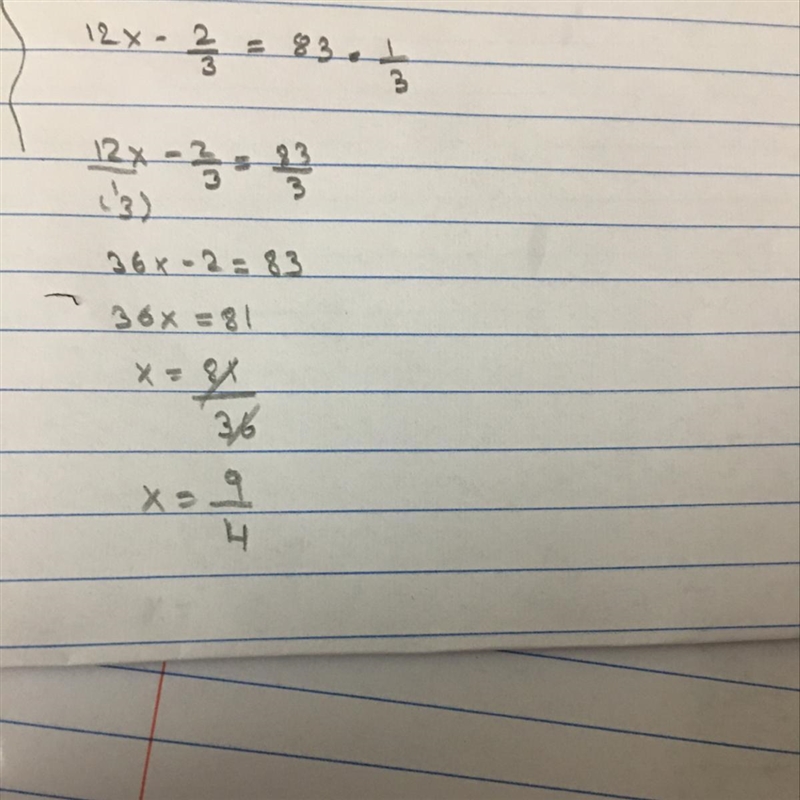 12x - 2/3 = 83 • 1/3
12x/1 - 2/3 = 83/3
(3)
36x - 2 = 83
36x = 81
x = 81/36
x = 9/4
x =